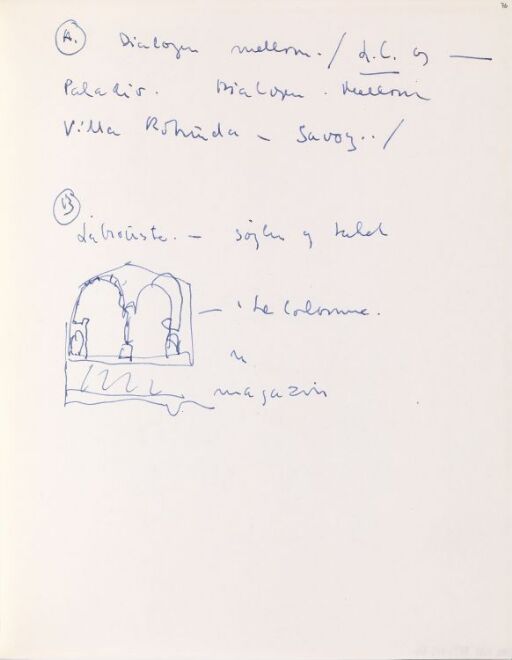 76
A. Dialogen mellom. / L.C. og —
Paladio. Dialogen. mellom
Villa Rotunda – Savoy.. /
B
Labrouste. – søylen og taket
– "La Colonne.
magazin